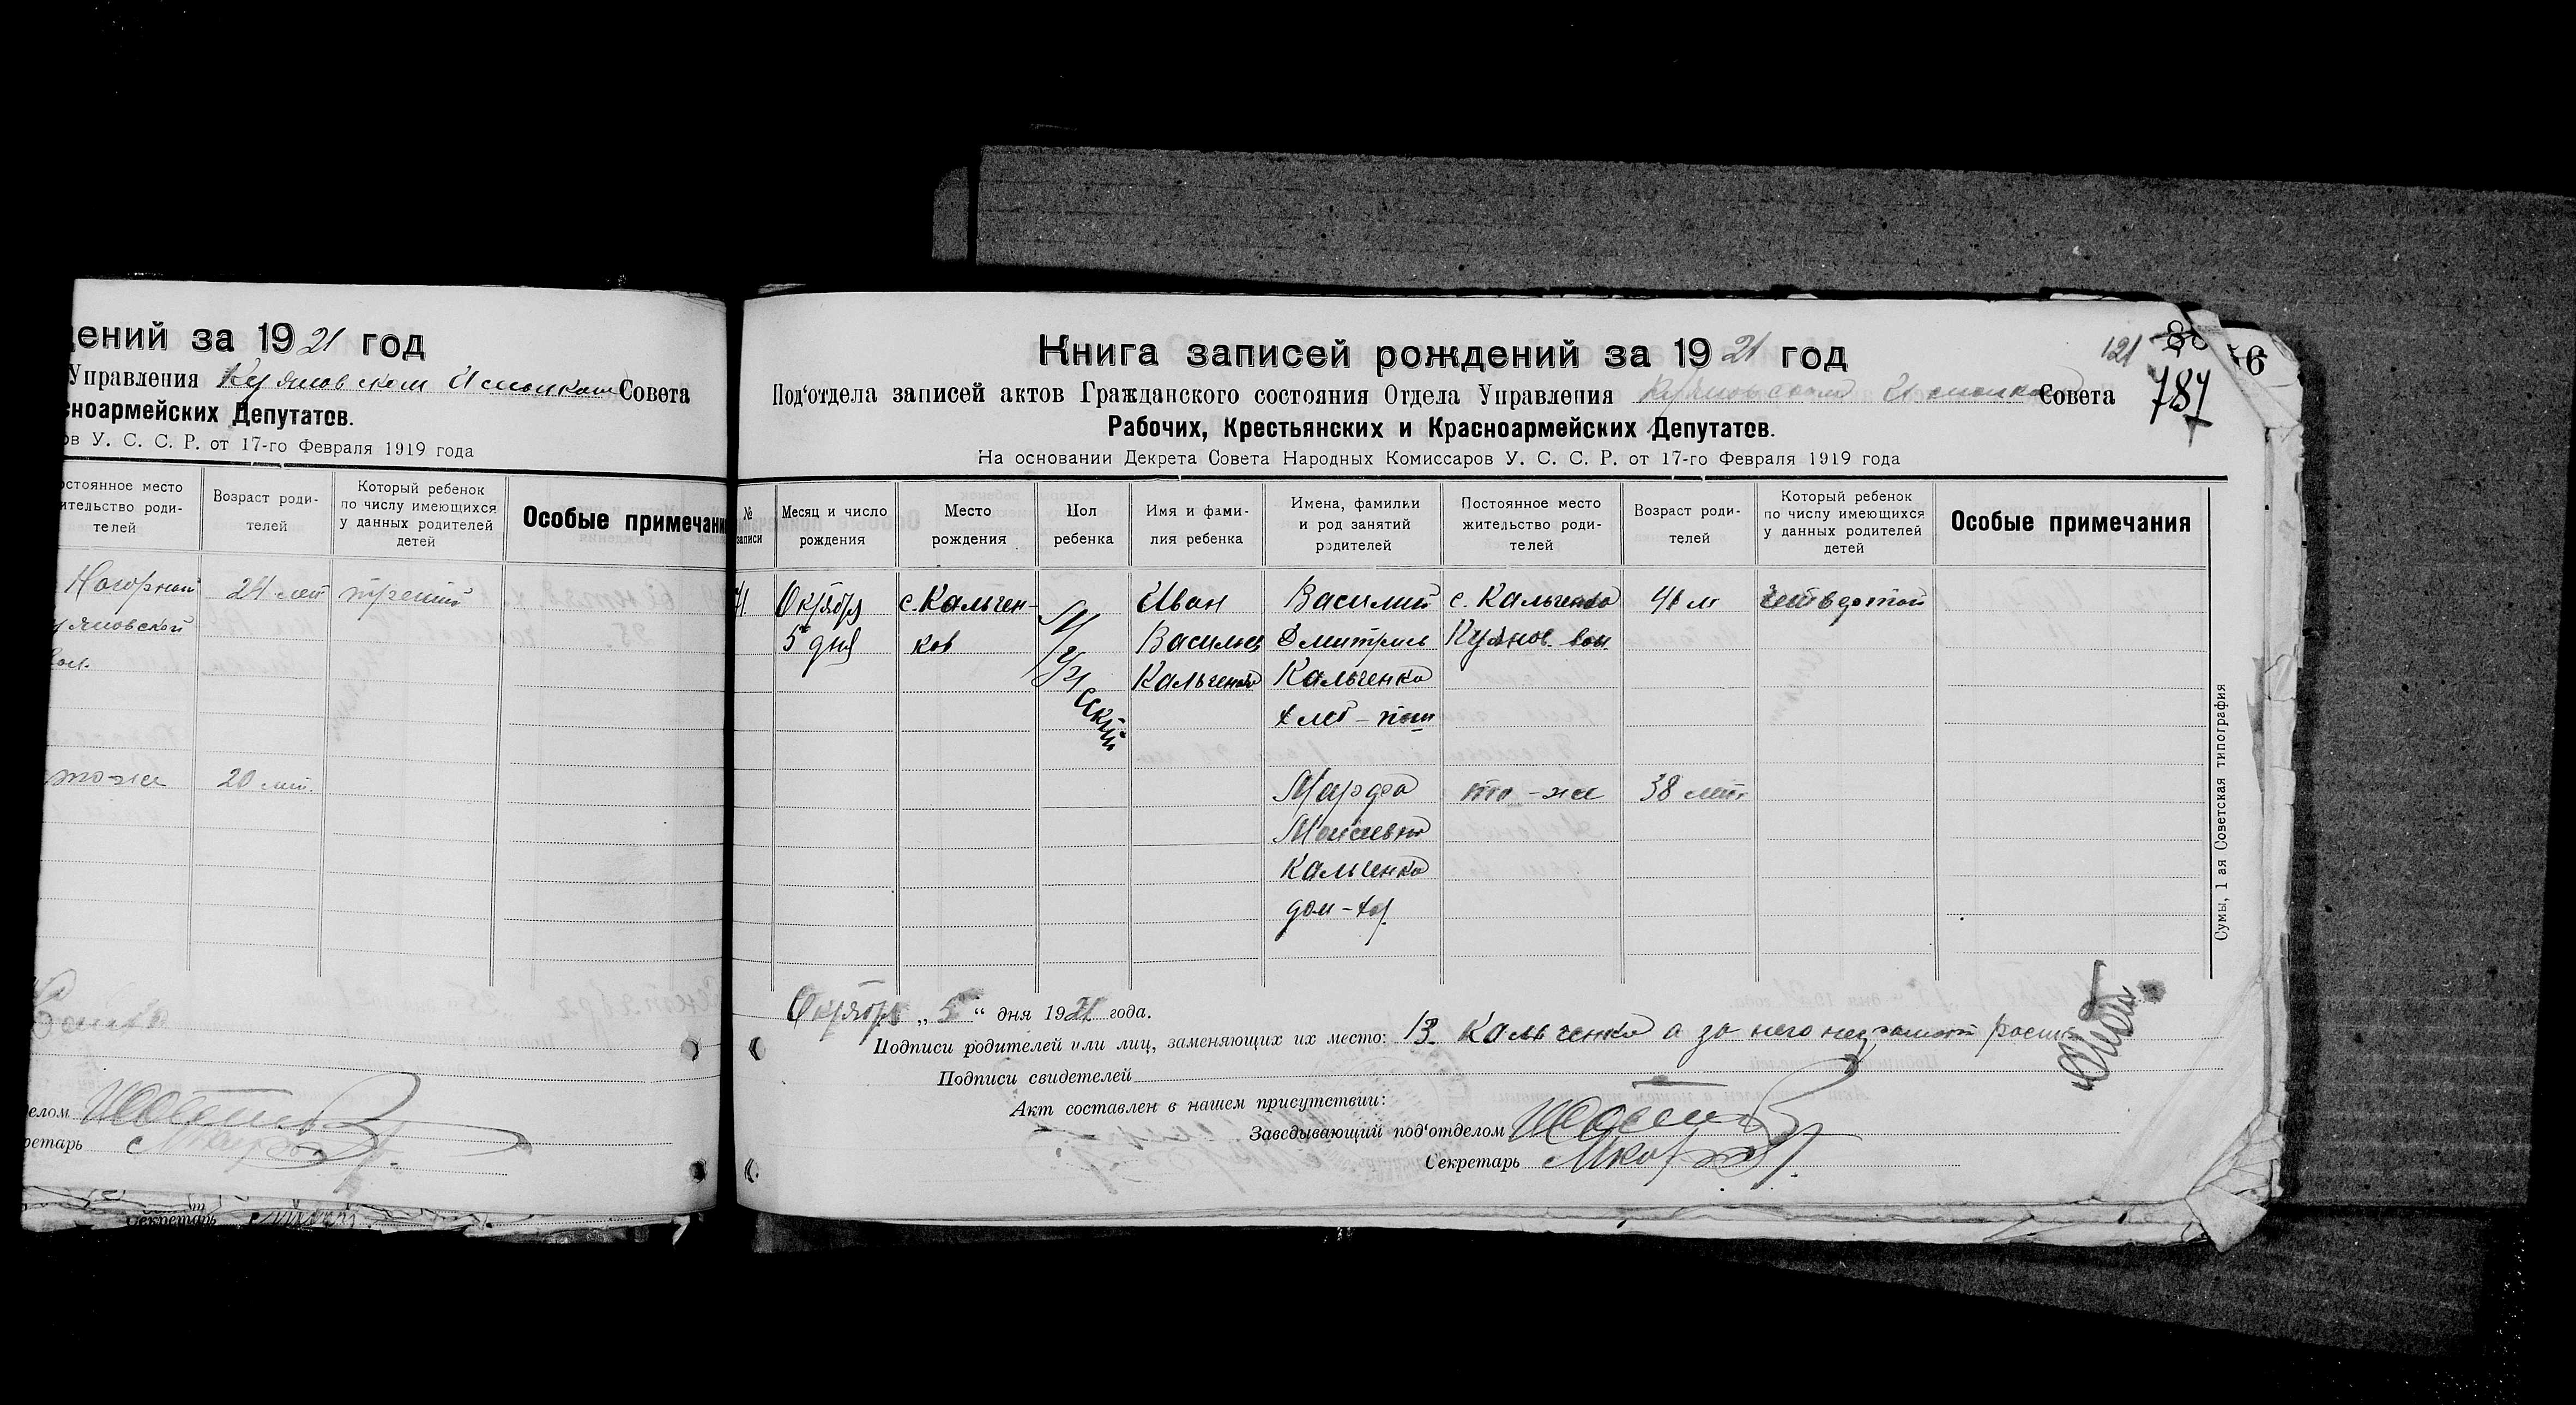 дений за 1921 год
Управления Куяновском Исполкома Совета
сноармейских Депутатов.
ов У. С. С. Р. от 17-го Февраля 1919 года
остоянное место
ительство роди-
телей
Возраст роди-
телей
Который ребенок
по числу имеющихся
у данных родителей
детей
Особые примечани
Нагорной
24 лет
третий
уяновской
вол.
то-же
20 лет.
елом
ретарь
Секретарь
Книга записей рождений за 1921 год
121
787
6
Под'отдела записей актов Гражданского состояния Отдела Управления Совета
Рабочих, Крестьянских и Красноармейских Депутатов.
На основании Декрета Совета Народных Комиссаров У. С. С. Р. от 17-го Февраля 1919 года
№
записи
Месяц и число
рождения
Место
рождения
Пол
ребенка
Имя и фами-
лия ребенка
Имена, фамилии
и род занятий
родителей
Постоянное место
жительство роди-
телей
Возраст роди-
телей
Который ребенок
по числу имеющихся
у данных родителей
детей
Особые примечания
Октября
5 дня
с. Кальчен-
ков
Мужеский
Иван
Васильев
Кальченко
Василий
Дмитриев
Кальченко
хлеб-паш
с. Кальченко
Куянов. вол.
41 л
четвертой
Марфа
Моисеевна
Кальченко
дом-хоз.
то-же
38 лет.
Октября „5“ дня 1921 года.
Подписи родителей или лиц, заменяющих их место: В. Кальченко а за него неграмот роспис
Подписи свидетелей
Акт составлен в нашем присутствии:
Заведывающий под'отделом
Секретарь
Сумы, 1 ая Советская типография